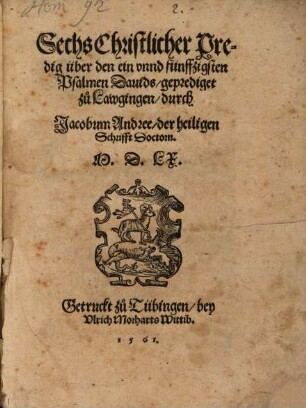 Hom 92
2.
Sechs Christlicher Pre-
dig über den ein vnnd fünffzigsten
Psalmen Dauids/geprediget
zů Lawgingen/durch
Jacobum Andree/der heiligen
Schrifft Doctorn.
M. D. LX.
Getruckt zů Tübingen/bey
Vlrich Morharts Wittib.
1561.